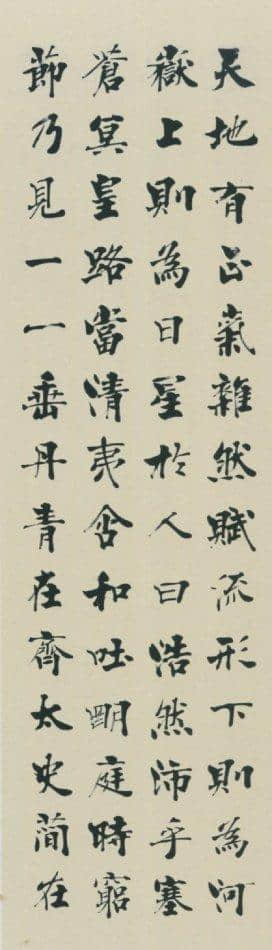 天地有正氣雜然賦流形下則為河
嶽上則為日星於人曰浩然沛乎塞
蒼冥皇路當清夷含和吐明庭時窮
節乃見一一垂丹青在齊太史簡在